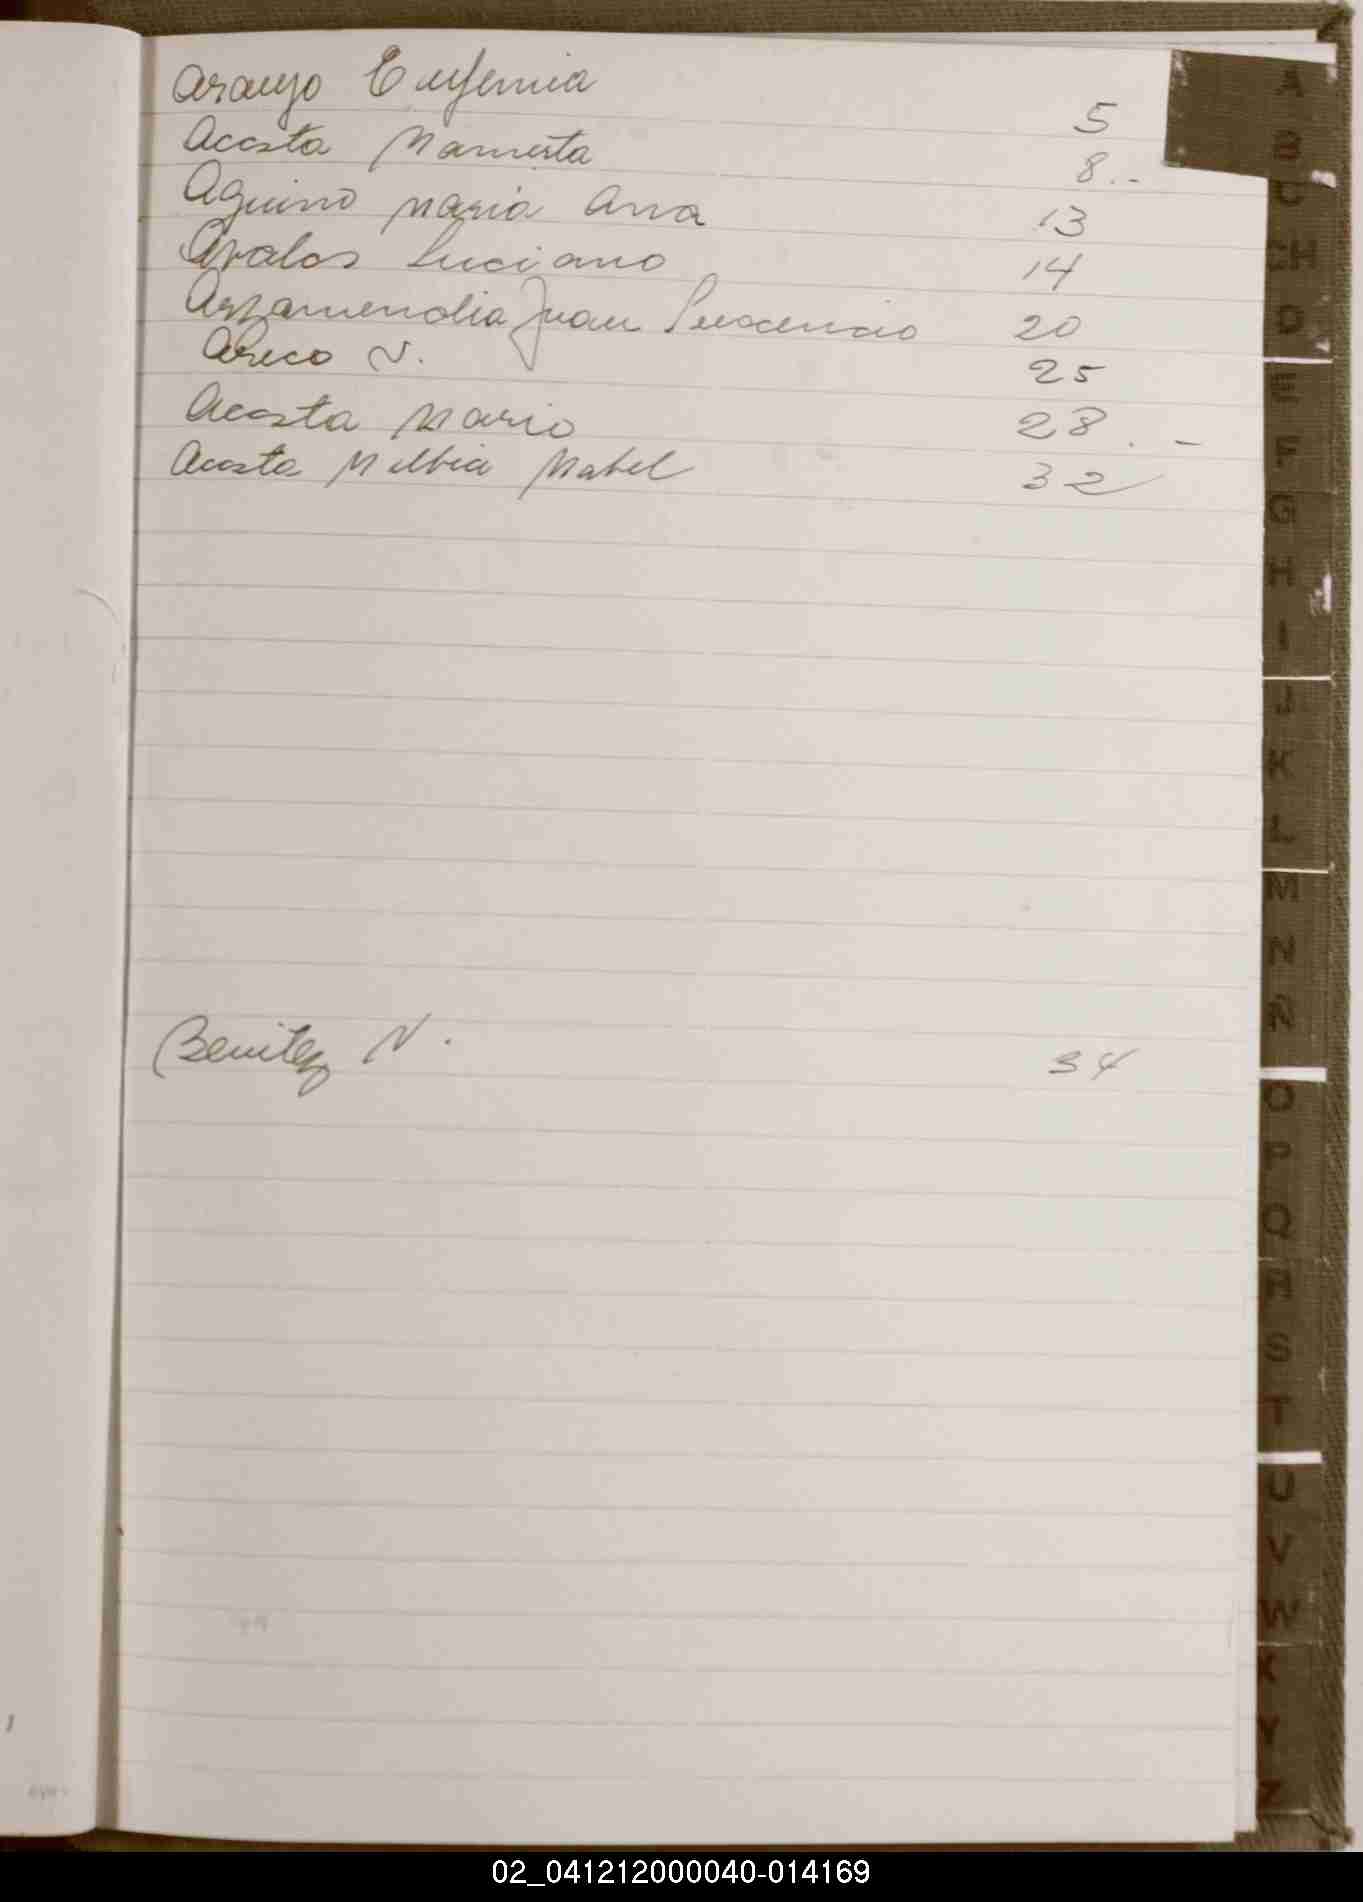 Araujo Eugenia 5
Acosta Mamerta 8.-
Aquino Maria Ana 13
Avalos Luciano 14
Arzamendia Juan 20
Areco N. 25
Acosta Mario 28.-
Acosta Melbia Mabel 32
Benitez N. 34
A
B
C
CH
D
E
F
G
H
I
J
K
L
M
N
Ñ
O
P
Q
R
S
T
U
V
W
X
Y
Z
02_041212000040-014169